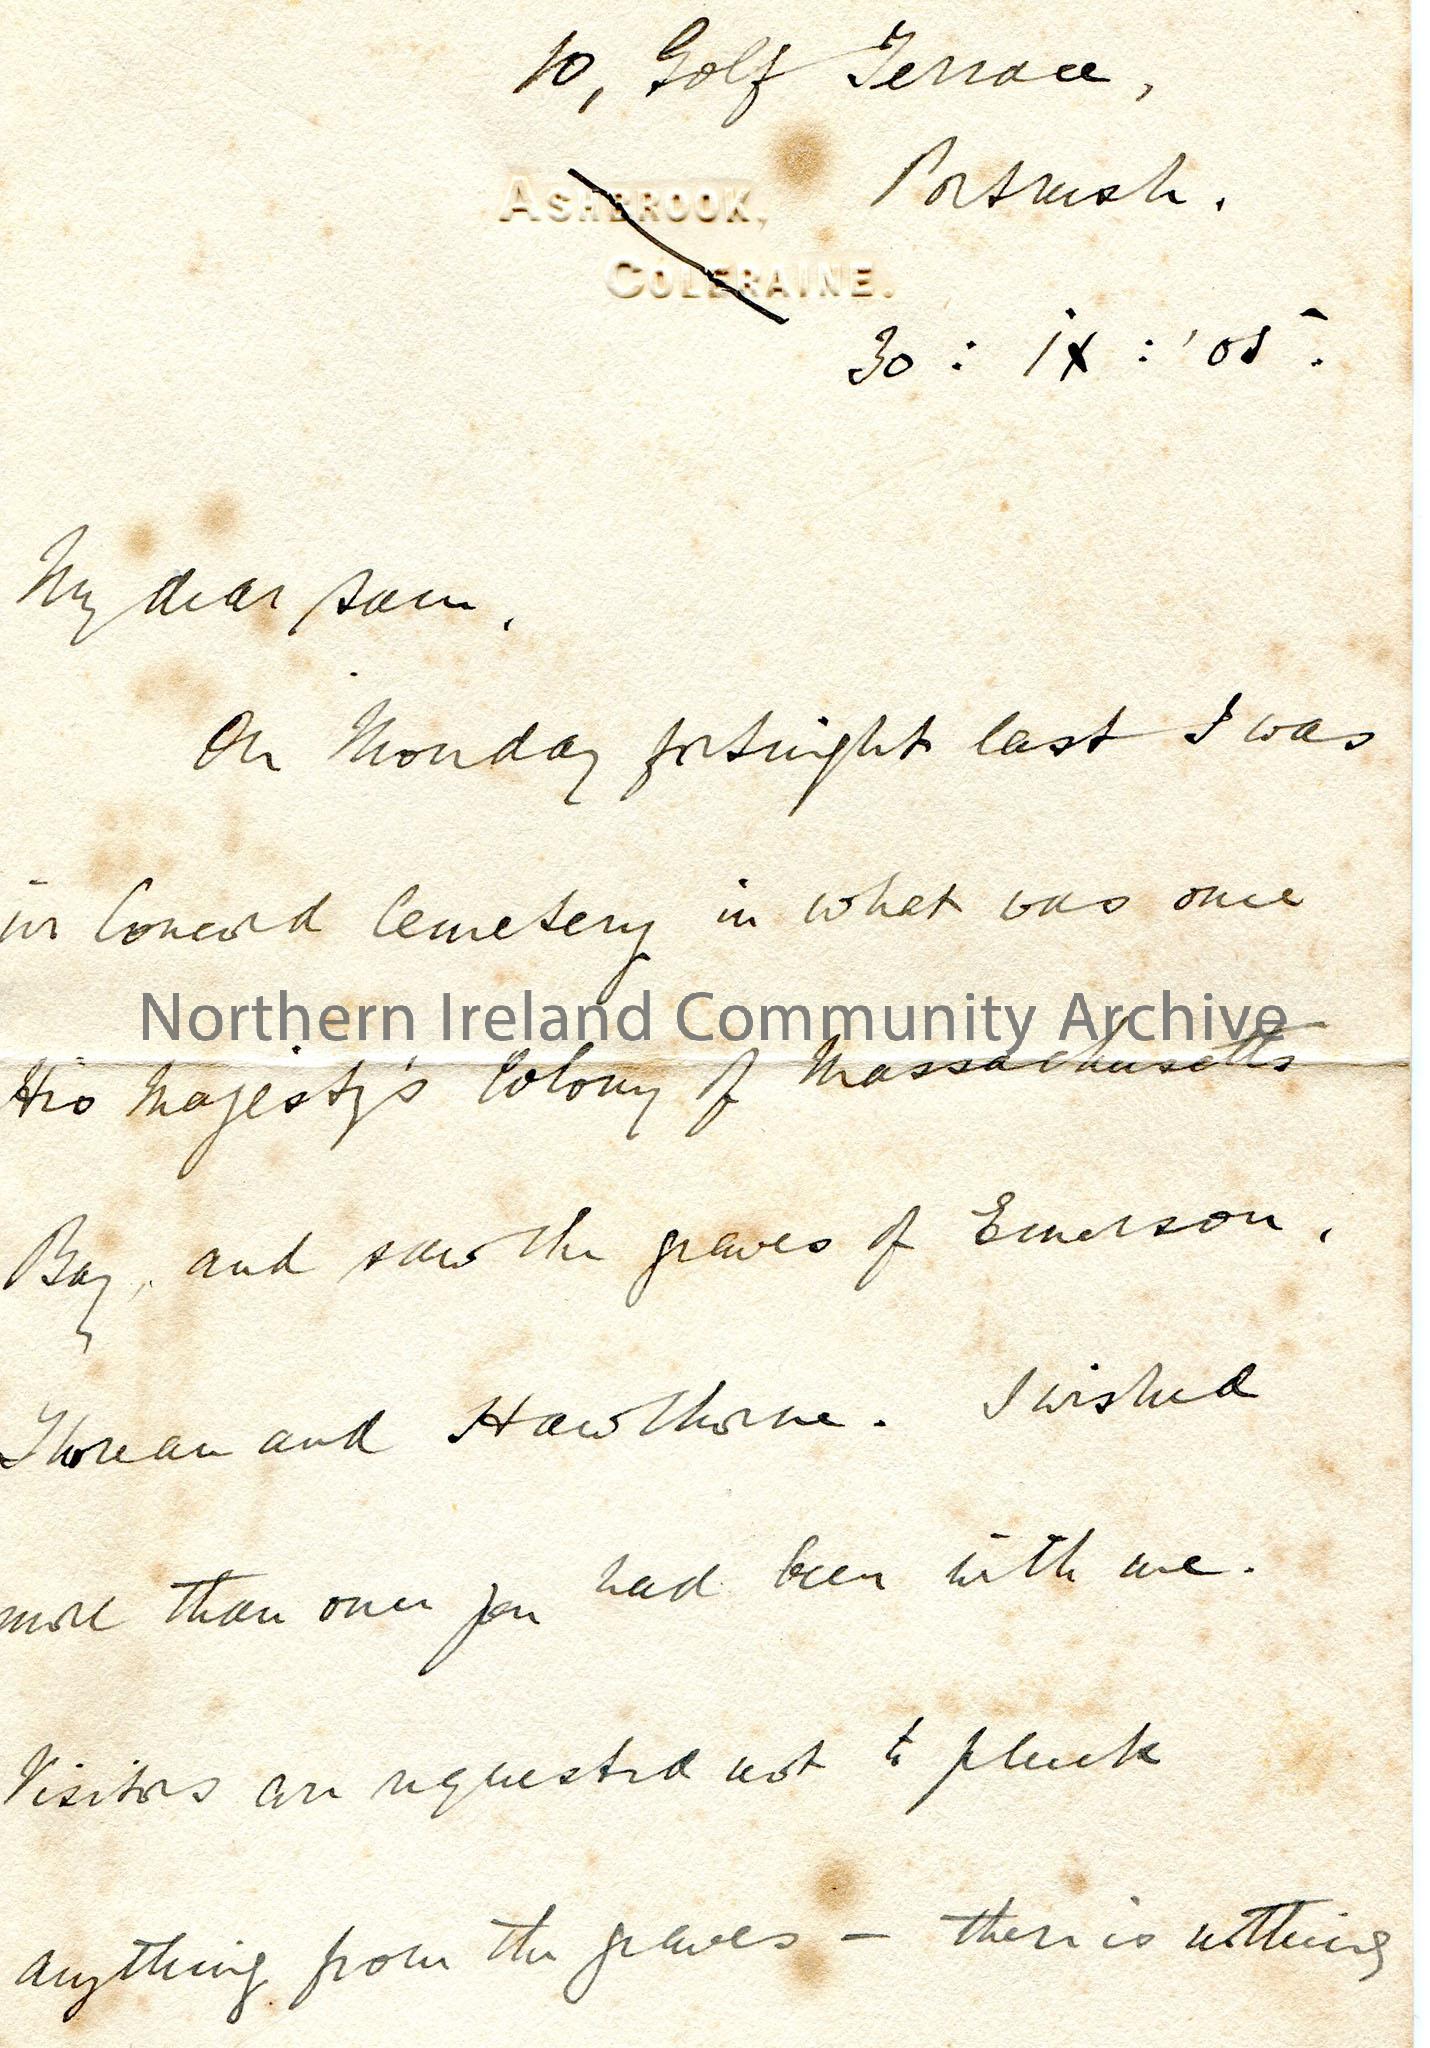 10, Golf Terrace,
Portrush.
ASHBROOK,
COLERAINE.
30 : IX : '05.
My dear Sam,
On Monday fortnight last I was
in Concord Cemetery in what was once
Northern Ireland Community Archive
His Majesty's Colony of Massachusetts
Bay, and saw the graves of Emerson,
Thoreau and Hawthorne. I wished
more than once you had been with me.
Visitors are requested not to pluck
anything from the graves — there is nothing